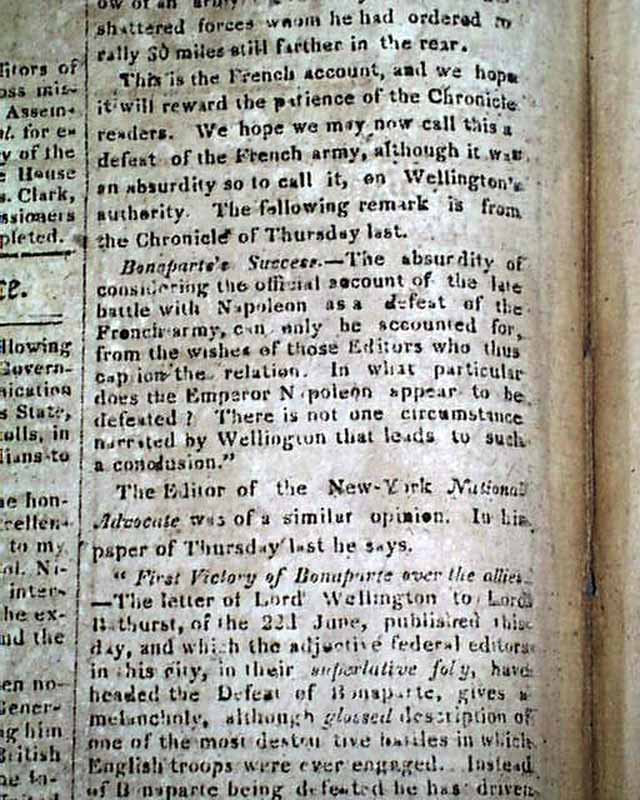 ditors of
oss mis-
Assem-
al. for e-
y of the
e House
s. Clark,
ssioners
pleted.
ce.
llowing
Govern-
nication
s State,
olls, in
dians to
he hon-
cellen-
to my
ol. Ni-
inter-
he ex-
nd the
en no-
Gener-
ng him
British
shattered forces whom he had ordered to
rally 30 miles still farther in the rear.
This is the French account, and we hope
it will reward the patience of the Chronicle
readers. We hope we may now call this a
defeat of the French army, although it was
an absurdity so to call it, on Wellington's
authority. The following remark is from
the Chronicle of Thursday last.
Bonaparte's Success.—The absurdity of
considering the official account of the late
battle with Napoleon as a defeat of the
French army, can only be accounted for,
from the wishes of those Editors who thus
caption the relation. In what particular
does the Emperor Napoleon appear to be
defeated? There is not one circumstance
narrated by Wellington that leads to such
a conclusion."
The Editor of the New-York National
Advocate was of a similar opinion. In his
paper of Thursday last he says.
" First Victory of Bonaparte over the allies.
—The letter of Lord Wellington to Lord
Bathurst, of the 22d June, published this
day, and which the adjective federal editors
in this city, in their superlative foly, have
headed the Defeat of Bonaparte, gives a
melancholy, although glossed description of
one of the most destructive battles in which
English troops were ever engaged. Instead
of Bonaparte being defeated he has driven